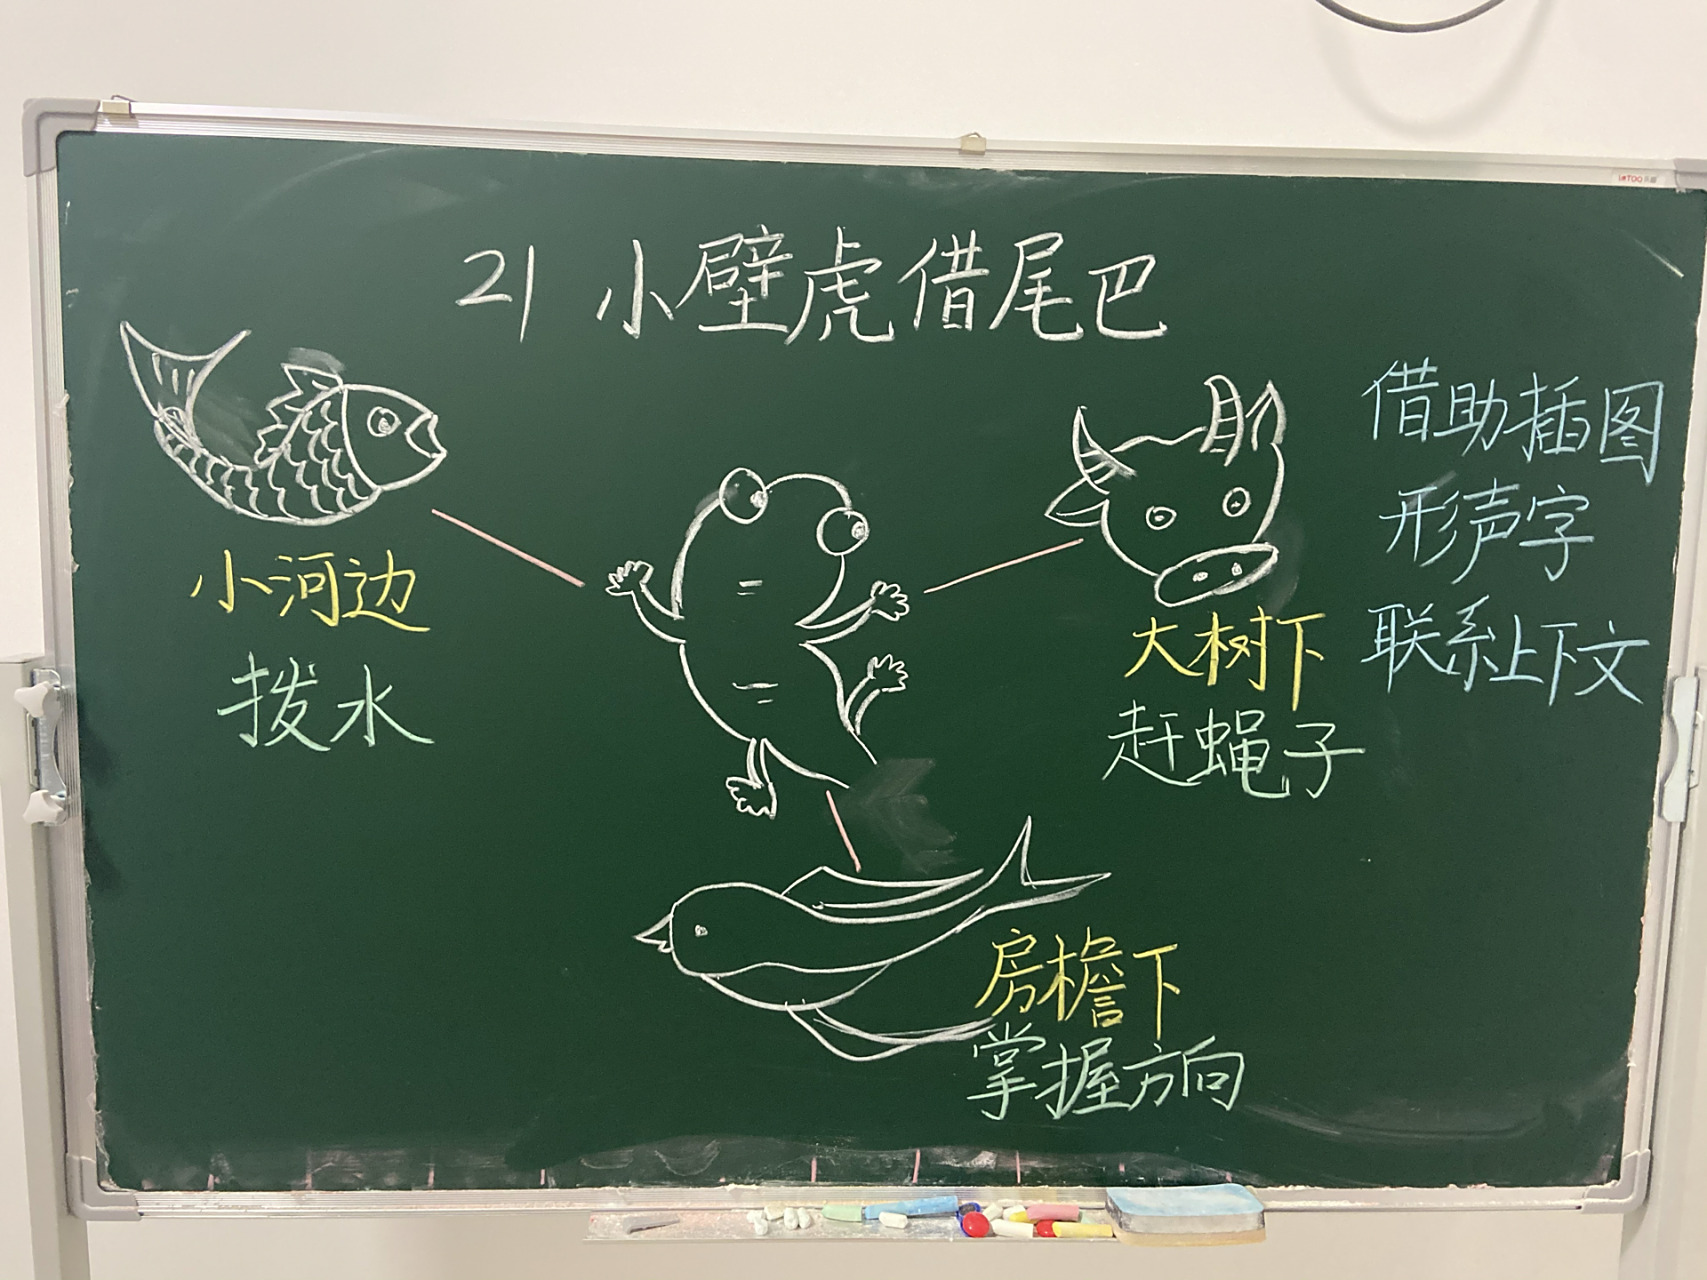 21 小壁虎借尾巴
小河边
拨水
大树下
赶蝇子
房檐下
掌握方向
借助插图
形声字
联系上下文